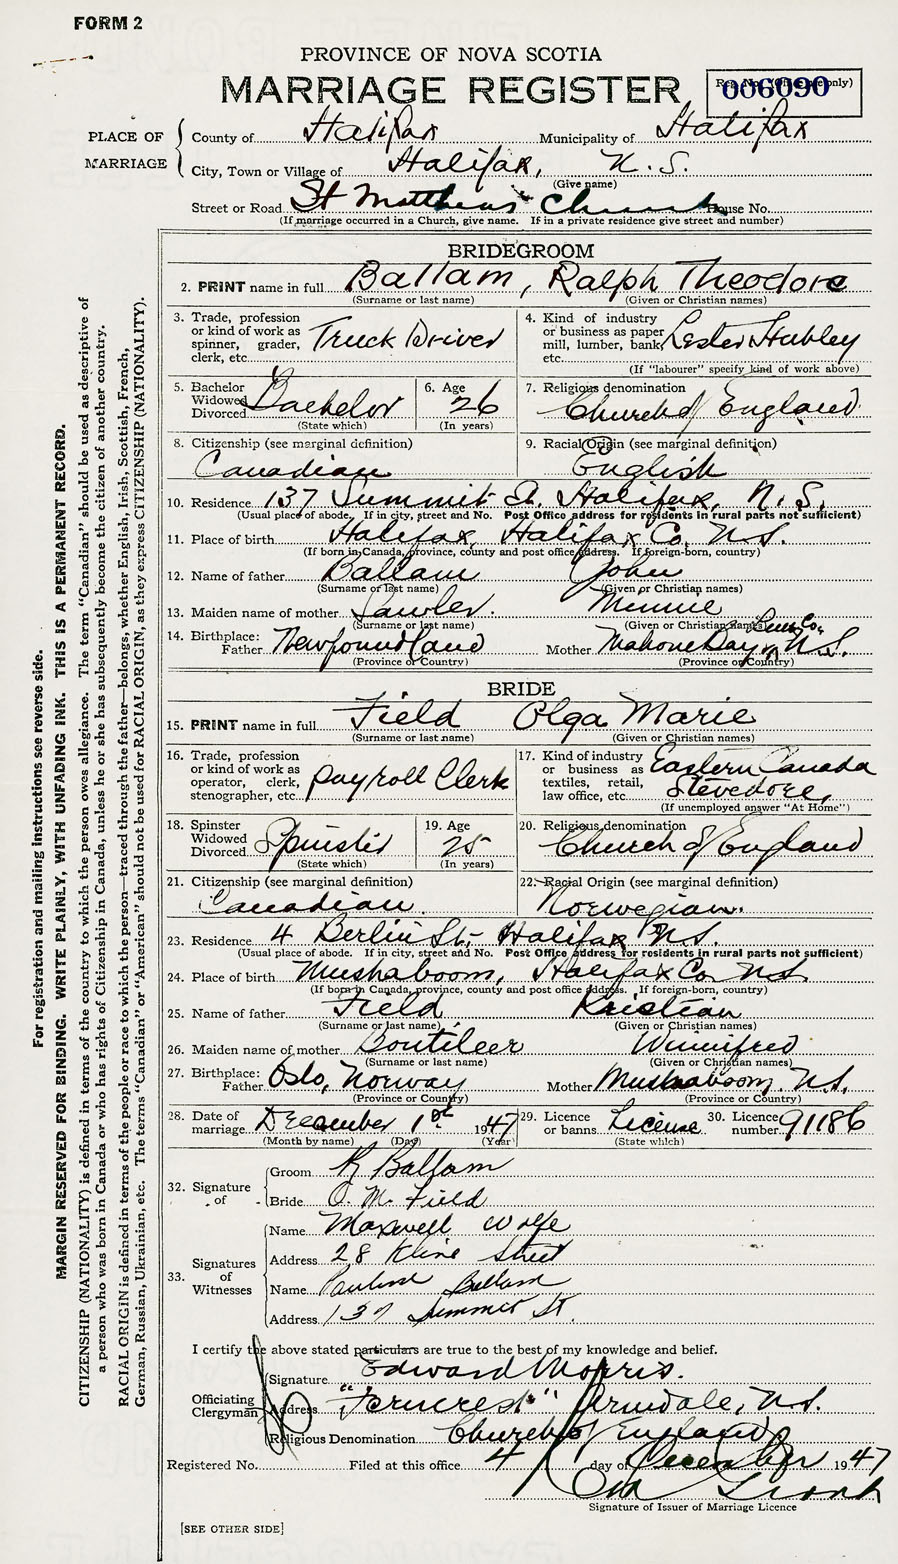 FORM 2
PROVINCE OF NOVA SCOTIA
MARRIAGE REGISTER
Reg. No. (Office use only)
006090
PLACE OF MARRIAGE
County of Halifax Municipality of Halifax
City, Town or Village of Halifax, N.S.
(Give name)
Street or Road St Matthews Church House No.
(If marriage occurred in a Church, give name. If in a private residence give street and number)
BRIDEGROOM
2. PRINT name in full Ballam, Ralph Theodore
(Surname or last name) (Given or Christian names)
3. Trade, profession or kind of work as spinner, grader, clerk, etc. Truck Driver
4. Kind of industry or business as paper mill, lumber, bank, etc. Lester Hubley
(If "labourer" specify kind of work above)
5. Bachelor Widowed Divorced Bachelor
(State which)
6. Age 26
(In years)
7. Religious denomination Church of England
8. Citizenship (see marginal definition) Canadian
9. Racial Origin (see marginal definition) English
10. Residence 137 Summit St. Halifax, N.S.
(Usual place of abode. If in city, street and No. Post Office address for residents in rural parts not sufficient)
11. Place of birth Halifax, Halifax Co. N.S.
(If born in Canada, province, county and post office address. If foreign-born, country)
12. Name of father Ballam John
(Surname or last name) (Given or Christian names)
13. Maiden name of mother Lawler. Minnie
(Surname or last name) (Given or Christian names)
14. Birthplace: Father Newfoundland Mother Mahone Bay, Lun. Co. N.S.
(Province or Country) (Province or Country)
BRIDE
15. PRINT name in full Field Olga Marie
(Surname or last name) (Given or Christian names)
16. Trade, profession or kind of work as operator, clerk, stenographer, etc. payroll Clerk
17. Kind of industry or business as textiles, retail, law office, etc. Eastern Canada Stevedore,
(If unemployed answer "At Home")
18. Spinster Widowed Divorced Spinster
(State which)
19. Age 25
(In years)
20. Religious denomination Church of England
21. Citizenship (see marginal definition) Canadian.
22. Racial Origin (see marginal definition) Norwegian.
23. Residence 4 Berlin St. Halifax N.S.
(Usual place of abode. If in city, street and No. Post Office address for residents in rural parts not sufficient)
24. Place of birth Mushaboom, Halifax Co. N.S.
(If born in Canada, province, county and post office address. If foreign-born, country)
25. Name of father Field Kristian
(Surname or last name) (Given or Christian names)
26. Maiden name of mother Boutileer Winnifred
(Surname or last name) (Given or Christian names)
27. Birthplace: Father Oslo, Norway Mother Mushaboom, N.S.
(Province or Country) (Province or Country)
28. Date of marriage December 1st 1947
(Month by name) (Day) (Year)
29. Licence or banns License
(State which)
30. Licence number 91186
32. Signature of
Groom R Ballam
Bride O. M. Field
33. Signatures of Witnesses
Name Maxwell Wolfe
Address 28 Kline Street
Name Pauline Ballam
Address 137 Summer St.
I certify the above stated particulars are true to the best of my knowledge and belief.
Officiating Clergyman
Signature Edward Morris.
Address "Ferncrest" Armdale, N.S.
Religious Denomination Church of England
Registered No. Filed at this office 4 day of December 1947
Signature of Issuer of Marriage Licence
[SEE OTHER SIDE]
For registration and mailing instructions see reverse side.
MARGIN RESERVED FOR BINDING. WRITE PLAINLY, WITH UNFADING INK. THIS IS A PERMANENT RECORD.
CITIZENSHIP (NATIONALITY) is defined in terms of the country to which the person owes allegiance. The term "Canadian" should be used as descriptive of
a person who was born in Canada or who has rights of Citizenship in Canada, unless he or she has subsequently become the citizen of another country.
RACIAL ORIGIN is defined in terms of the people or race to which the person—traced through the father—belongs, whether English, Irish, Scottish, French,
German, Russian, Ukrainian, etc. The terms "Canadian" or "American" should not be used for RACIAL ORIGIN, as they express CITIZENSHIP (NATIONALITY).